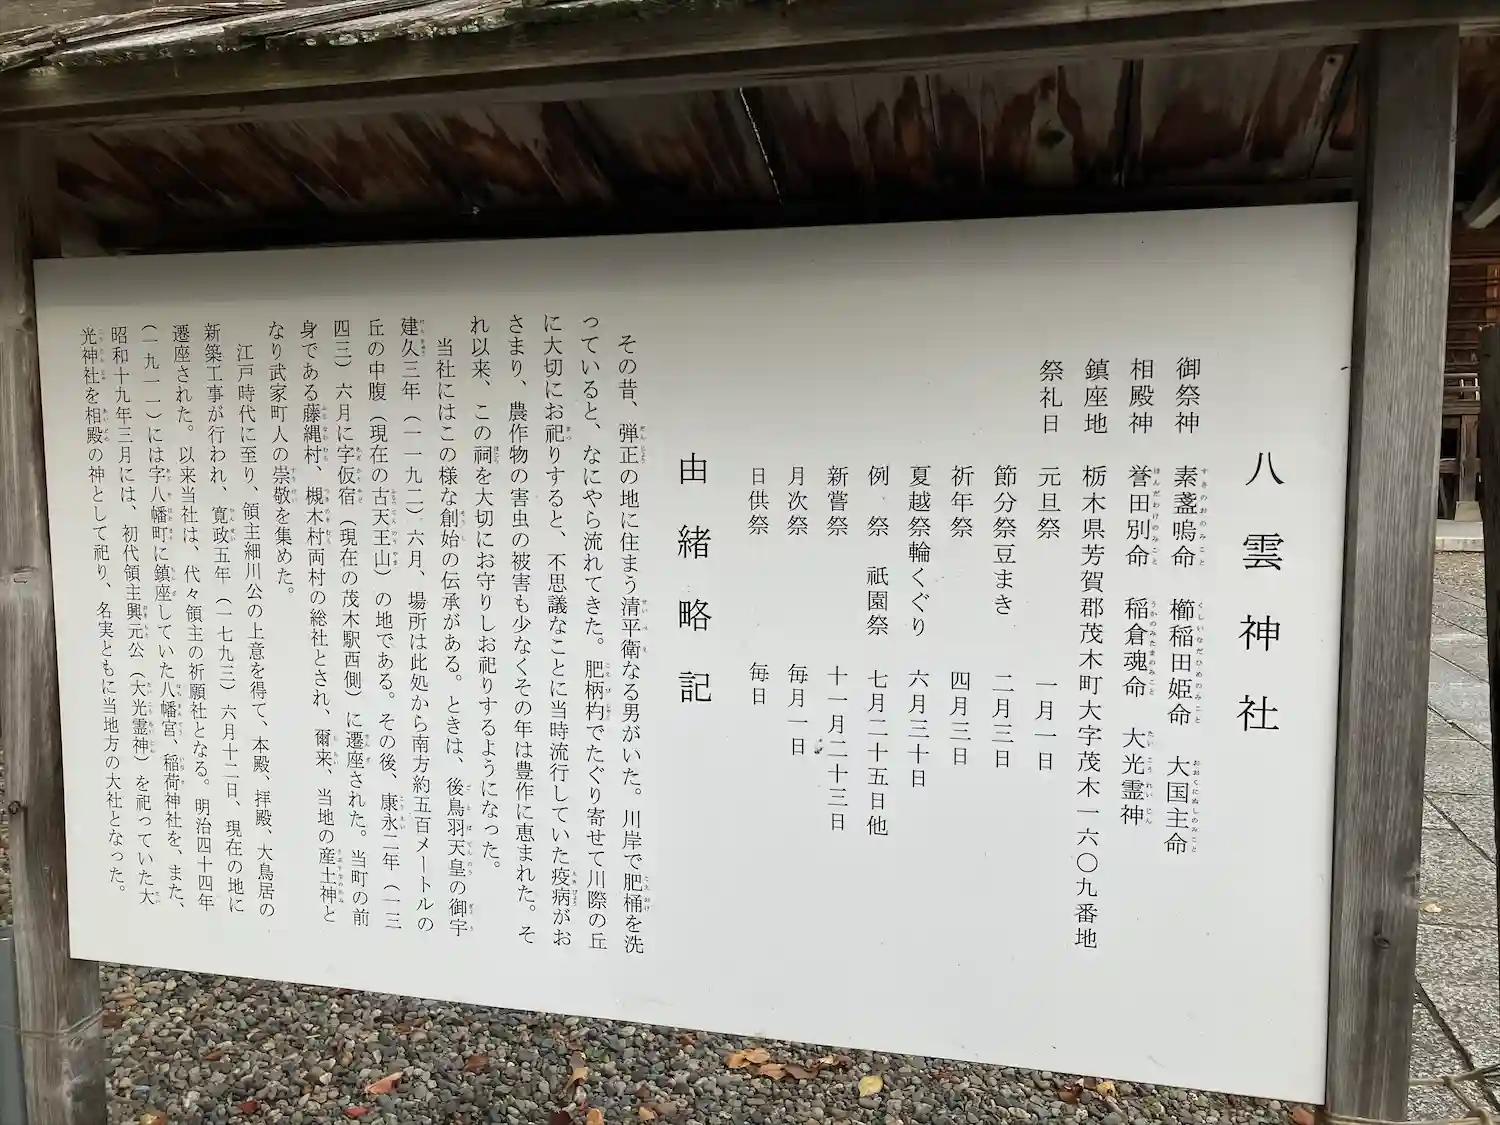 八雲神社
御祭神　素盞嗚命　櫛稲田姫命　大国主命
相殿神　誉田別命　稲倉魂命　大光霊神
鎮座地　栃木県芳賀郡茂木町大字茂木一六〇九番地
祭礼日　元旦祭　一月一日
節分祭豆まき　二月三日
祈年祭　四月三日
夏越祭輪くぐり　六月三十日
例　祭　祇園祭　七月二十五日他
新嘗祭　十一月二十三日
月次祭　毎月一日
日供祭　毎日
由緒略記
その昔、弾正の地に住まう清平衛なる男がいた。川岸で肥桶を洗
っていると、なにやら流れてきた。肥柄杓でたぐり寄せて川際の丘
に大切にお祀りすると、不思議なことに当時流行していた疫病がお
さまり、農作物の害虫の被害も少なくその年は豊作に恵まれた。そ
れ以来、この祠を大切にお守りしお祀りするようになった。
当社にはこの様な創始の伝承がある。ときは、後鳥羽天皇の御宇
建久三年（一一九二）六月、場所は此処から南方約五百メートルの
丘の中腹（現在の古天王山）の地である。その後、康永二年（一三
四三）六月に字仮宿（現在の茂木駅西側）に遷座された。当町の前
身である藤縄村、槻木村両村の総社とされ、爾来、当地の産土神と
なり武家町人の崇敬を集めた。
江戸時代に至り、領主細川公の上意を得て、本殿、拝殿、大鳥居の
新築工事が行われ、寛政五年（一七九三）六月十二日、現在の地に
遷座された。以来当社は、代々領主の祈願社となる。明治四十四年
（一九一一）には字八幡町に鎮座していた八幡宮、稲荷神社を、また、
昭和十九年三月には、初代領主興元公（大光霊神）を祀っていた大
光神社を相殿の神として祀り、名実ともに当地方の大社となった。